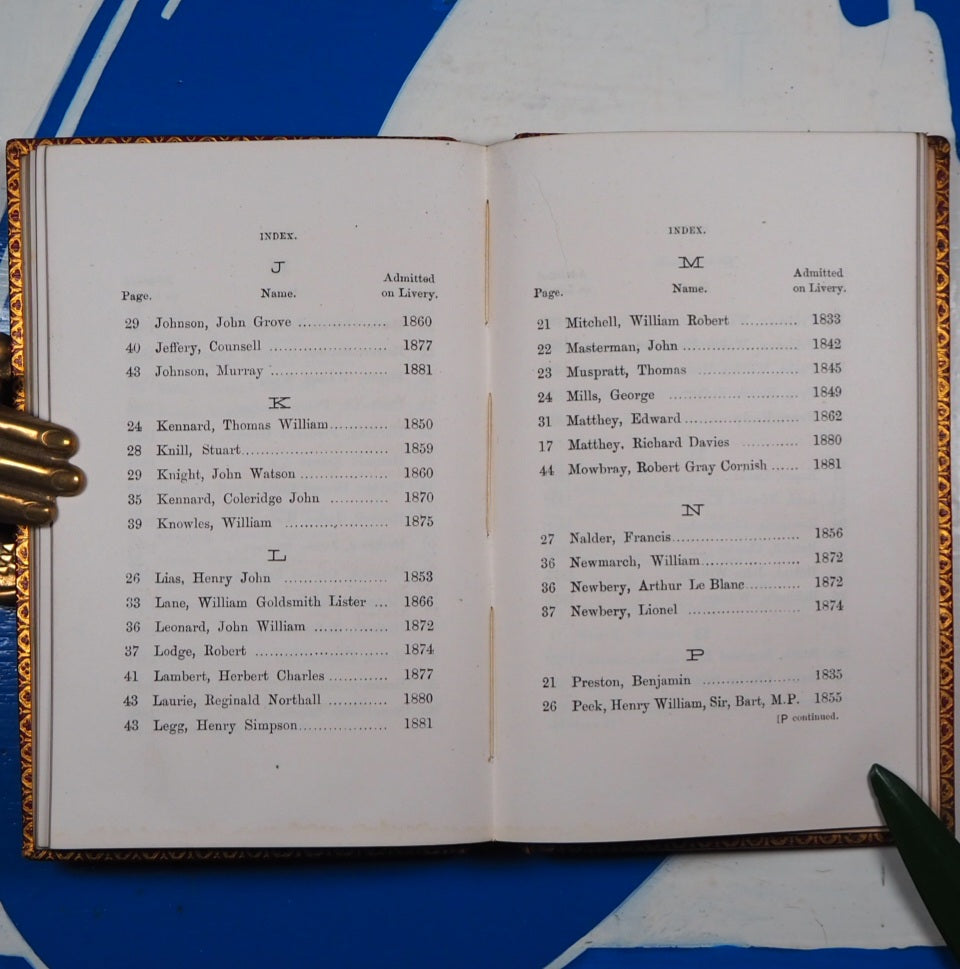 INDEX.
J
Page. Name. Admitted on Livery.
29 Johnson, John Grove .................. 1860
40 Jeffery, Counsell ........................ 1877
43 Johnson, Murray ........................ 1881
K
24 Kennard, Thomas William............ 1850
28 Knill, Stuart.............................. 1859
29 Knight, John Watson .................. 1860
35 Kennard, Coleridge John ............ 1870
39 Knowles, William ..................... 1875
L
26 Lias, Henry John ..................... 1853
33 Lane, William Goldsmith Lister ... 1866
36 Leonard, John William ............... 1872
37 Lodge, Robert ........................... 1874
41 Lambert, Herbert Charles ............ 1877
43 Laurie, Reginald Northall ............ 1880
43 Legg, Henry Simpson.................. 1881
INDEX.
M
Page. Name. Admitted on Livery.
21 Mitchell, William Robert ............ 1833
22 Masterman, John ........................ 1842
23 Muspratt, Thomas ..................... 1845
24 Mills, George ........................... 1849
31 Matthey, Edward ........................ 1862
17 Matthey, Richard Davies ............ 1880
44 Mowbray, Robert Gray Cornish ...... 1881
N
27 Nalder, Francis........................... 1856
36 Newmarch, William..................... 1872
36 Newbery, Arthur Le Blanc............ 1872
37 Newbery, Lionel ........................ 1874
P
21 Preston, Benjamin ..................... 1835
26 Peek, Henry William, Sir, Bart, M.P. 1855
[P continued.